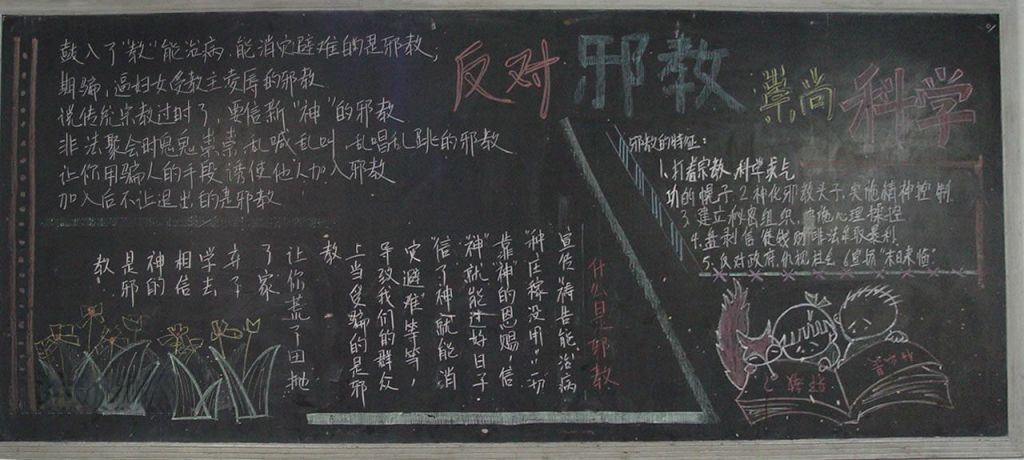 反对 邪教 崇尚 科学
鼓入了"教"能治病,能消灾避难的是邪教;
期骗,逼妇女受教主变辱的邪教
谎传宗教过时了,要信新"神"的邪教
非法聚会时鬼鬼祟祟,乱喊乱叫,乱唱乱跳的邪教
让你用骗人的手段诱使他人加入邪教
加入后不让退出的是邪教
邪教的特征:
1、打着宗教、科学气
功的幌子.2.神化邪教头子.实施精神控制
3、建立秘密组织、实施心理操控
4.盖利信徒钱财非法牟取暴利
5、反对政府.仇视社会.6宣扬"末日来临"
什么是邪教
宣传"祷告能治病
种庄稼没用",一切
靠神的恩赐,"信
神"就能过好日子
"信了神"就能消
灾避难"等等,
导致我们的群众
上当受骗的是邪
教
让你荒了田抛
了家
弃子
学去
相信
神的
是邪
教